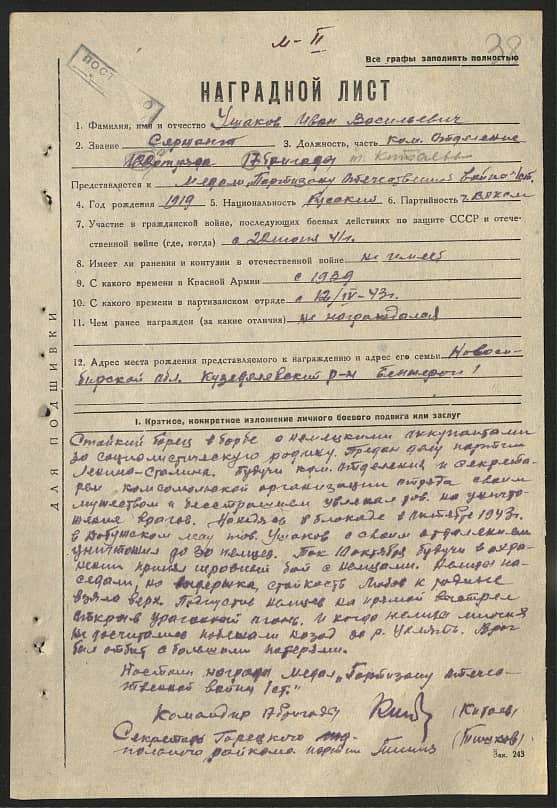 М-II
38
Все графы заполнять полностью
ПОСТ
НАГРАДНОЙ ЛИСТ
1. Фамилия, имя и отчество Ушаков Иван Васильевич
2. Звание Сержант 3. Должность, часть ком. отделения
отряда 17 бригады т. Китаева
Представляется к Медали „Партизану Отечественной войны" 1 ст.
4. Год рождения 1919 5. Национальность русский 6. Партийность
7. Участие в гражданской войне, последующих боевых действиях по защите СССР и отече-
ственной войне (где, когда) с 22 июня 41 г.
8. Имеет ли ранения и контузии в отечественной войне не имеет
9. С какого времени в Красной Армии с 1939
10. С какого времени в партизанском отряде с 12/IV-43 г.
11. Чем ранее награжден (за какие отличия) не награждался
12. Адрес места рождения представляемого к награждению и адрес его семьи Новоси-
бирской обл. р-н
ДЛЯ ПОДШИВКИ
I. Краткое, конкретное изложение личного боевого подвига или заслуг
Стойкий борец в борьбе с немецкими оккупантами
за социалистическую родину. Предан делу партии
Ленина-Сталина. Будучи ком. отделения и секрета-
рем комсомольской организации отряда своим
мужеством и бесстрашием увлекал тов. на уничто-
жение врагов. Находясь в блокаде в октябре 1943 г.
в лесу тов. Ушаков с своим отделением
уничтожил до 30 немцев. Так 10 октября будучи в охра-
нении принял неровный бой с немцами. Немцы на-
седали, но выдержка, стойкость любовь к родине
взяло верх. Подпустив немцев на прямой выстрел
открыв ураганный огонь. И когда немцы многих
не досчитались побежали назад за р. Враг
был отбит с большими потерями.
Достоин награды медал. „Партизану Отечес-
твенной войны 1 ст."
Командир 17 бригады (Китаев)
Секретарь Горецкого под-
польного райкома партии
Зак. 243